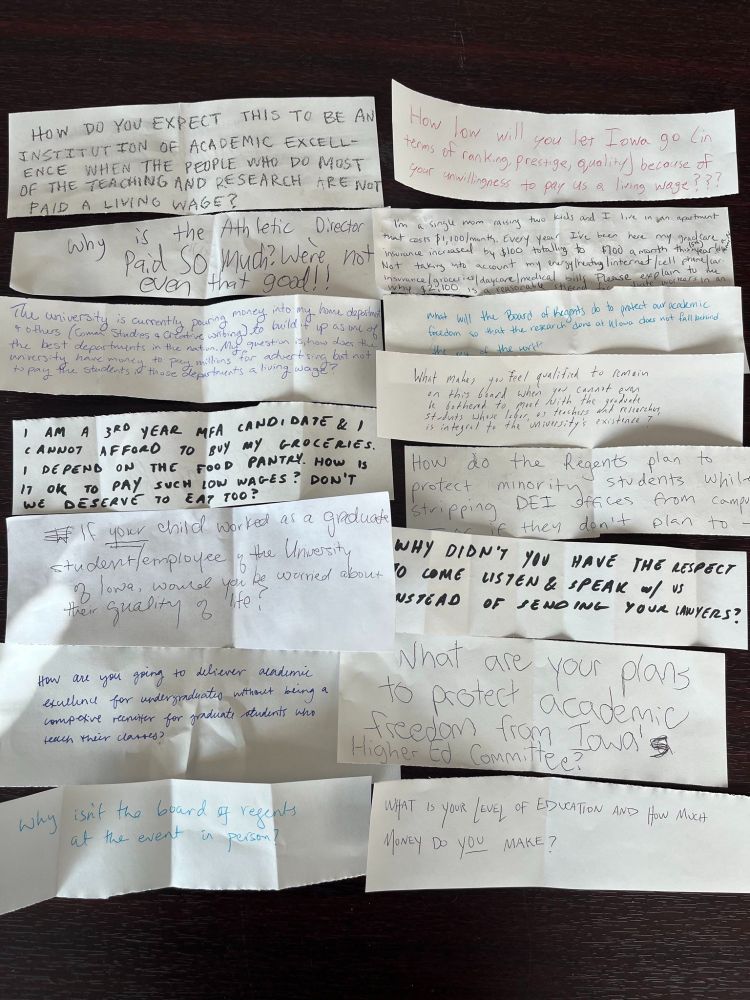 HOW DO YOU EXPECT THIS TO BE AN
INSTITUTION OF ACADEMIC EXCELL-
ENCE WHEN THE PEOPLE WHO DO MOST
OF THE TEACHING AND RESEARCH ARE NOT
PAID A LIVING WAGE?
Why is the Athletic Director
Paid SO Much? We're not
even that good!!
The university is currently pouring money into my home department
& others (Comm. Studies & Creative Writing) to build it up as one of
the best departments in the nation. My question is how does the
university have money to pay millions for advertising but not
to pay the students in those departments a living wage?
I AM A 3RD YEAR MFA CANDIDATE & I
CANNOT AFFORD TO BUY MY GROCERIES.
I DEPEND ON THE FOOD PANTRY. HOW IS
IT OK TO PAY SUCH LOW WAGES? DON'T
WE DESERVE TO EAT TOO?
If your child worked as a graduate
student/employee of the University
of Iowa, would you be worried about
their quality of life?
How are you going to deliever academic
excellence for undergraduates without being a
competive recruiter for graduate students who
teach their classes?
Why isn't the board of regents
at the event in person?
How low will you let Iowa go (in
terms of ranking, prestige, quality) because of
your unwillingness to pay us a living wage???
I'm a single mom raising two kids and I live in an apartment
that costs $1,100/month. Every year I've been here my gradcare
insurance increased by $100 totalling to $700 a month this year
Not taking into account my energy/heating/internet/cell phone/car
insurance/groceries/daycare/medical bills. Please explain to me
why $2,100 is a reasonable workers in an
What will the Board of Regents do to protect our academic
freedom so that the research done at UIowa does not fall behind
the rest of the world?
What makes you feel qualified to remain
on this board when you cannot even
be bothered to meet with the graduate
students whose labor, as teachers and researchers,
is integral to the university's existence?
How do the Regents plan to
protect minority students while
stripping DEI offices from campus
or if they don't plan to
WHY DIDN'T YOU HAVE THE RESPECT
TO COME LISTEN & SPEAK w/ US
INSTEAD OF SENDING YOUR LAWYERS?
What are your plans
to protect academic
freedom from Iowa's
Higher Ed Committee?
WHAT IS YOUR LEVEL OF EDUCATION AND HOW MUCH
MONEY DO YOU MAKE?